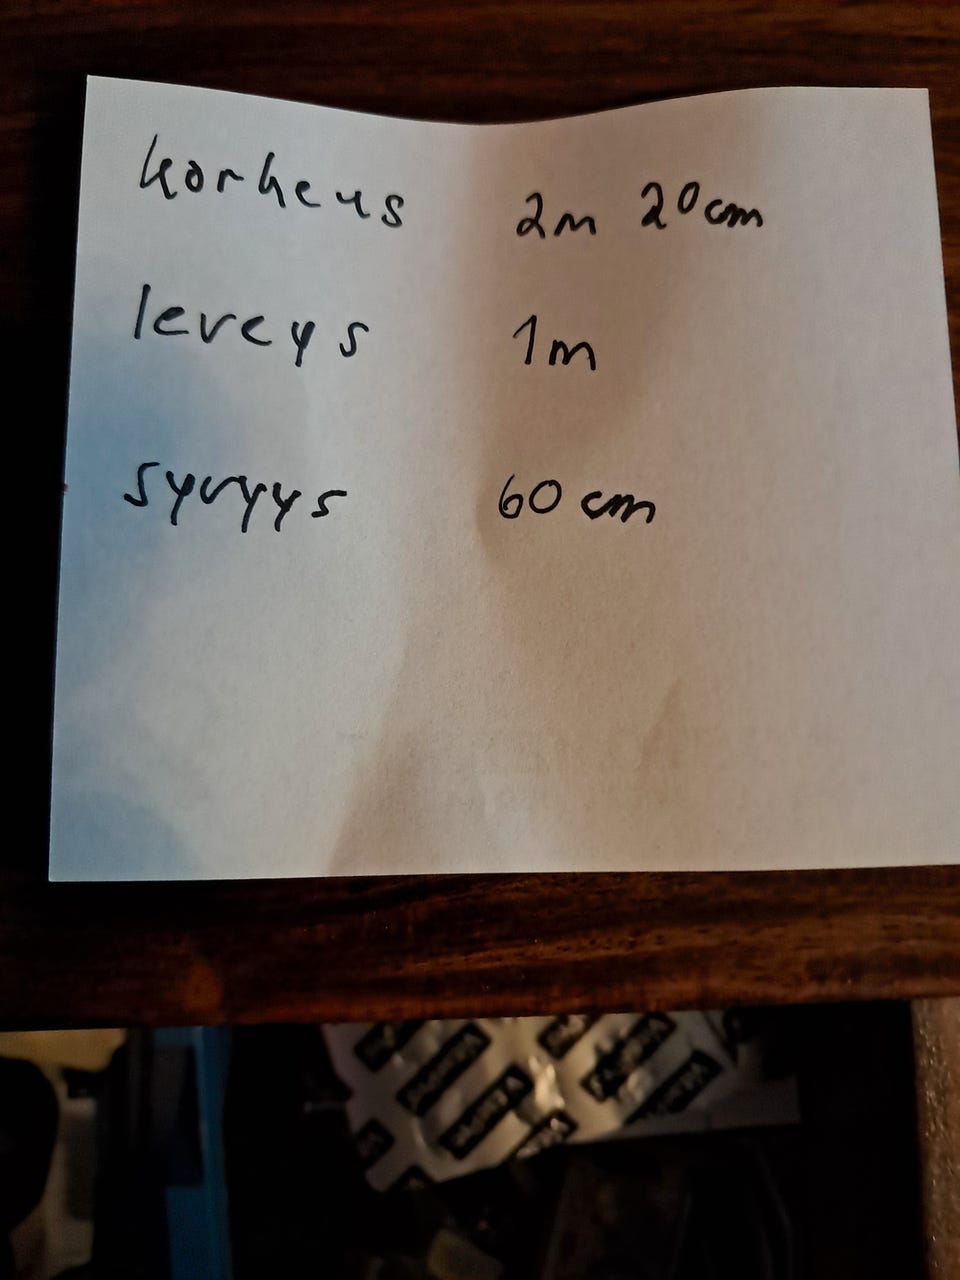 korkeus 2m 20cm
leveys 1m
syvyys 60 cm